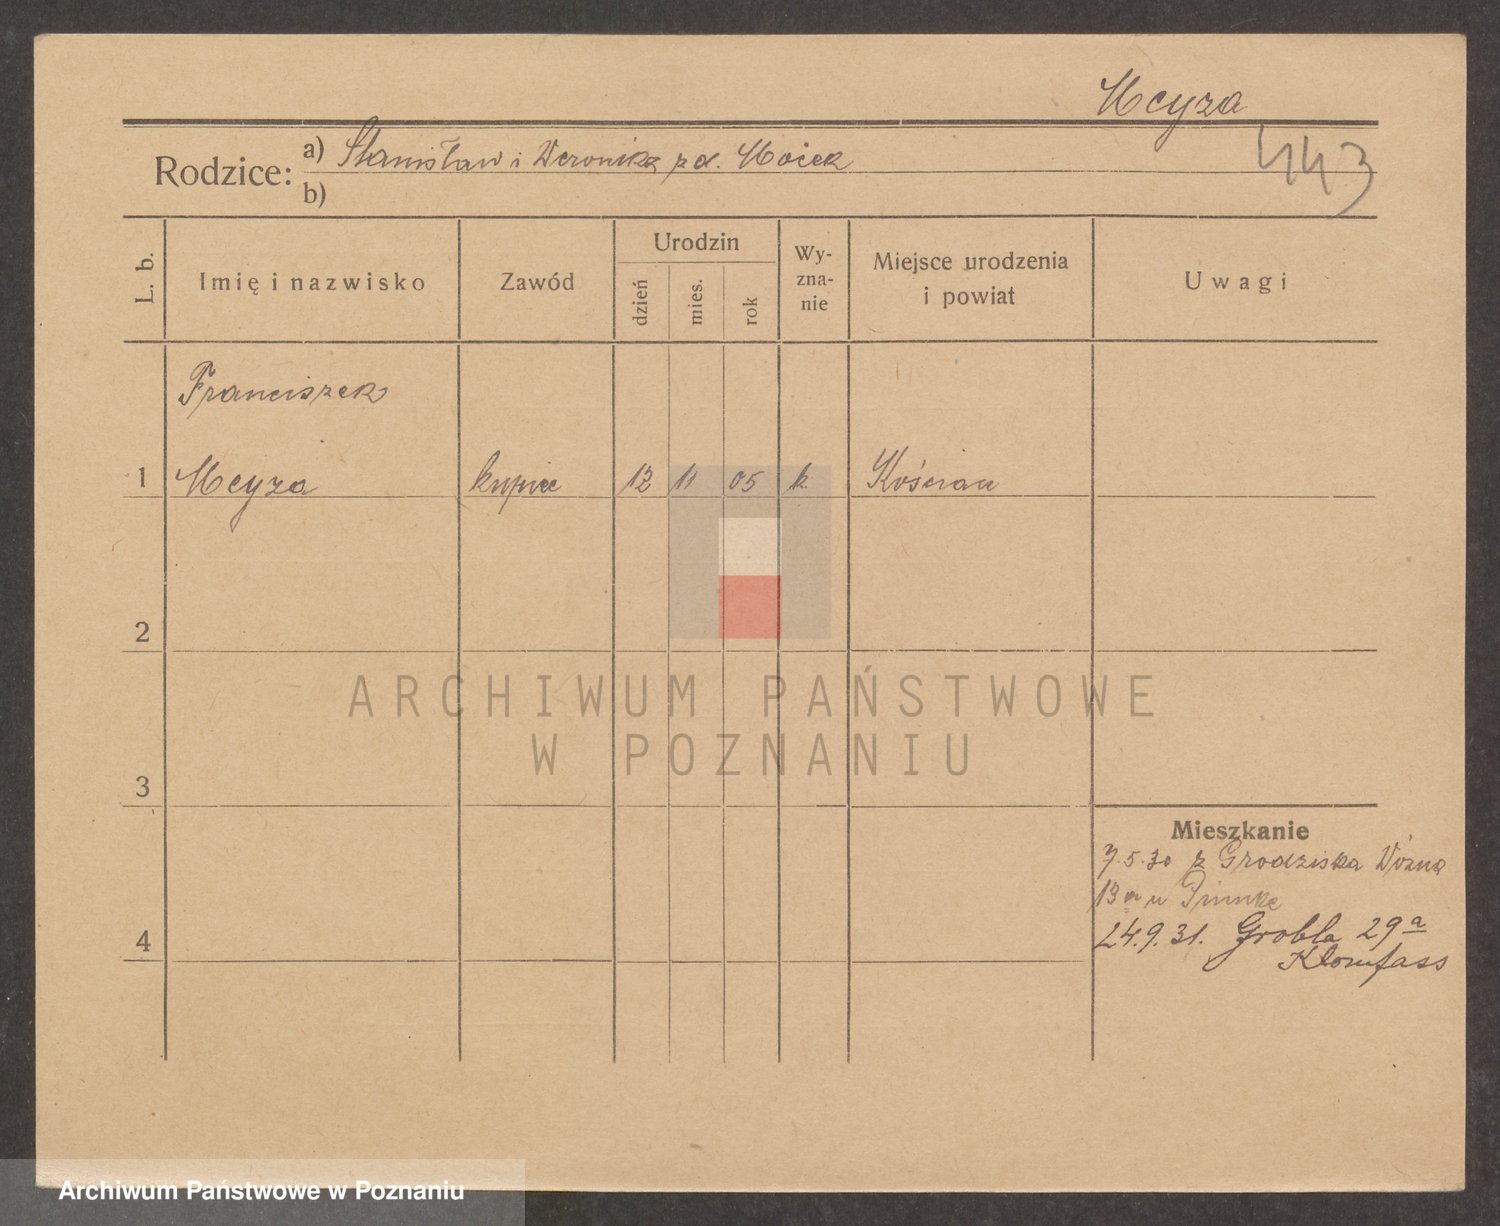 Meyza
Rodzice: a) Stanisław i Weronika z d. Mocek
443
b)
L. b. Imię i nazwisko Zawód Urodzin dzień mies. rok Wy-zna-nie Miejsce urodzenia i powiat Uwagi
Franciszek
1 Meyza kupiec 12 11 05 k. Kościan
2
ARCHIWUM PAŃSTWOWE
W POZNANIU
3
Mieszkanie
7.5.30 z Grodziska Woźna
13 u
4 24.9.31. Grobla 29a
Klomfass
Archiwum Państwowe w Poznaniu